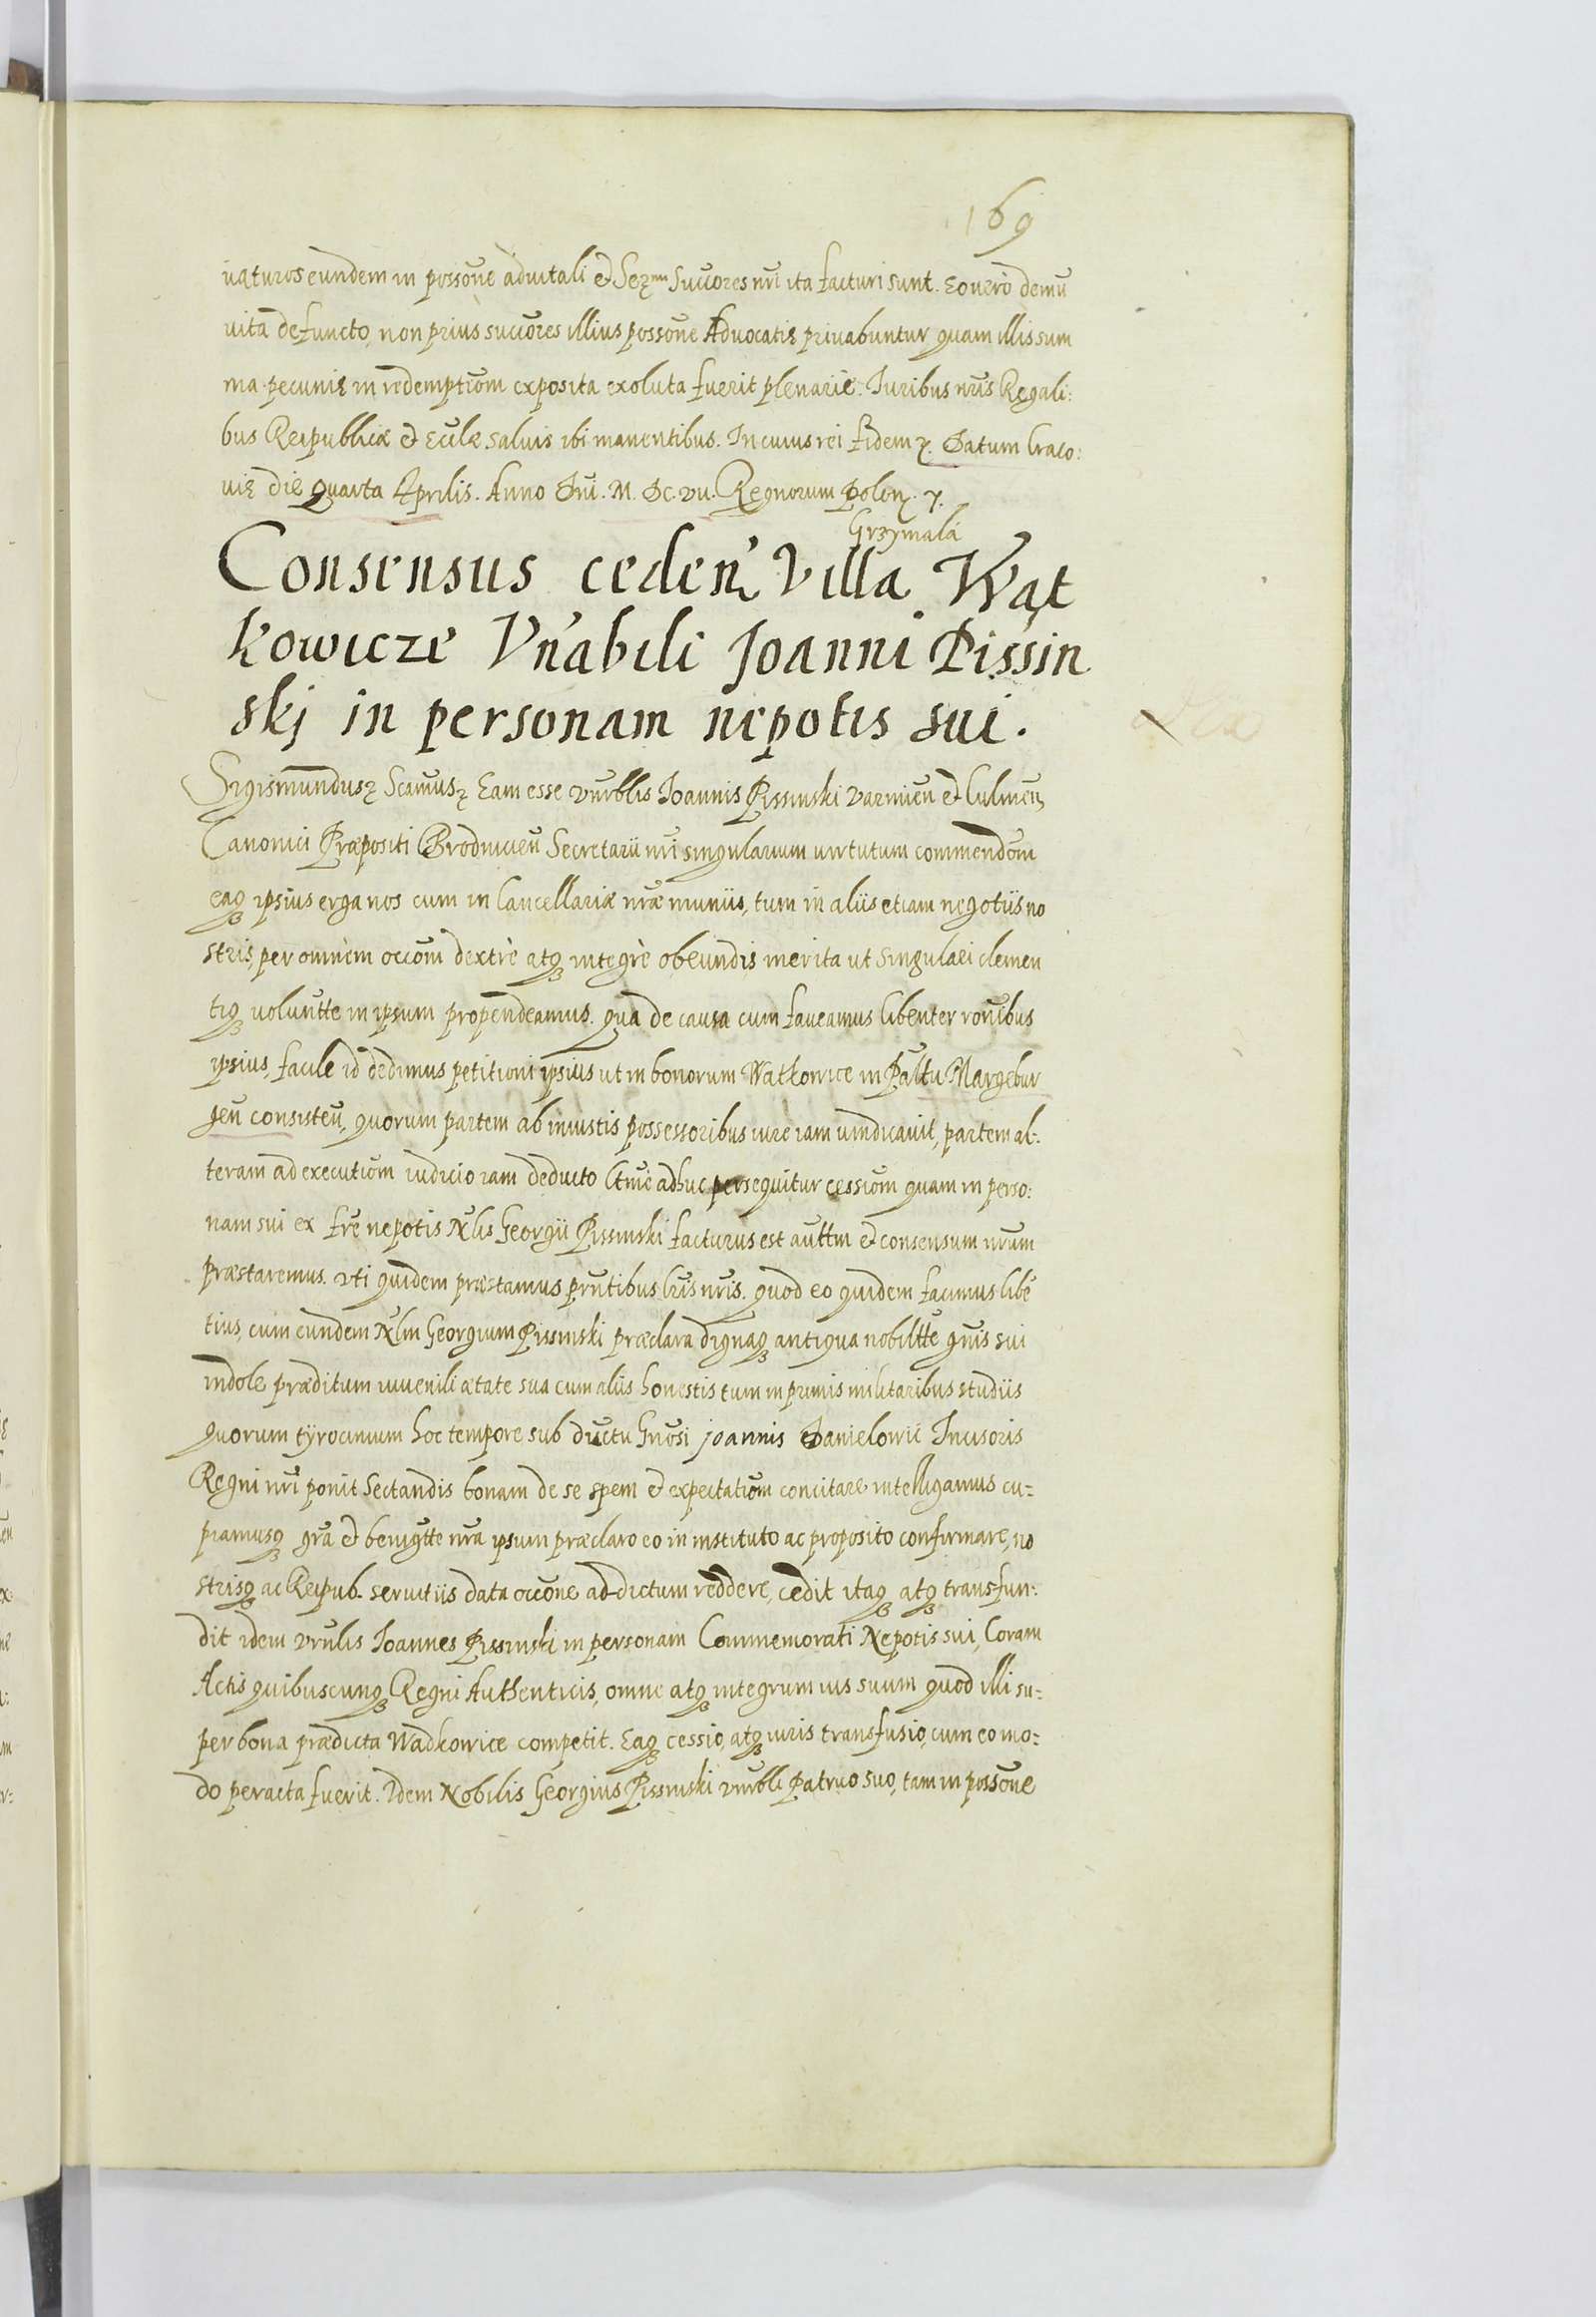 169
uaturos eundem in possoñe aduitali et Serᵐⁱ Succores nr̃i ita facturi sunt. Eo uerò demũ
vitã defuncto, non prius succores illius possoñe Aduocatię priuabuntur quam illis sum
ma pecunię in redemptiom̃ exposita exoluta fuerit plenariè. Iuribus nr̃is Regali:
bus Reipublicæ et Eccl̃æ saluis ibi manentibus. In cuius rei fidem ꝛ. Datum Craco:
uię die Quarta Aprilis. Anno Dñi. M. DC. VII. Regnorum Polon̨. ꝛ.
Grzymala
Consensus ceden̨ Villa Wąt
kowicze Vñabili Joanni Pissin
skj in personam nepotis sui.
Sigismundusꝛ Scamusꝛ Eam esse vnr̃blis Ioannis Pissinski Varmieñ et Culmeñ
Canonici Præpositi Brodnicieñ Secretarii nr̃i singularium virtutum commendom̃
eaqꝫ ipsius erga nos cum in Cancellariæ nr̃æ muniis, tum in aliis etiam negotiis no
stris, per omnem occom̃ dextrè atqꝫ integrè obeundis merita ut singulari clemen
tiqꝫ voluñtte in ipsum propendeamus. qua de causa cum faueamus libenter roñibus
ipsius, facile id dedimus petitioni ipsius ut in bonorum Watkowice in Pal̃tu Margebur
geñ consisteñ, quorum partem ab iniustis possessoribus iure iam uindicauit, partem al:
teram ad executiom̃ iudicio iam deducto Ctm̃e adhuc persequitur cessiom̃ quam in perso:
nam sui ex fr̃e nepotis Nl̃is Georgii Pissinski facturus est auttm̃ et consensum nr̃um
præstaremus. Vti quidem præstamus prñtibus lr̃is nr̃is. quod eo quidem facimus libẽ
tius, cum eundem Nl̃m Georgium Pissinski præclara dignaqꝫ antiqua nobiltt̃e gñis sui
indole præditum iuuenili ætate sua cum aliis honestis tum in primis militaribus studiis
quorum tÿrocinium hoc tempore sub ductu Gñosi Joannis Danielowic Incisoris
Regni nr̃i ponit sectandis bonam de se spem et expectatiom̃ concitare intelligamus cu=
piamusqꝫ gr̃a et benigtt̃e nr̃a ipsum præclaro eo in instituto ac proposito confirmare, no
strisqꝫ ac Reipub. seruitiis data occoñe addictum reddere, cedit itaqꝫ atqꝫ transfun:
dit idem vnr̃lis Ioannes Pissinski in personam Commemorati Nepotis sui, Coram
Actis quibuscunqꝫ Regni Authenticis, omne atqꝫ integrum ius suum quod illi su=
per bona prædicta Wadkowice competit. Eaqꝫ cessio, atqꝫ iuris transfusio, cum eo mo=
do peracta fuerit. Idem Nobilis Georgius Pissinski vnr̃bli Patruo suo, tam in possoñe